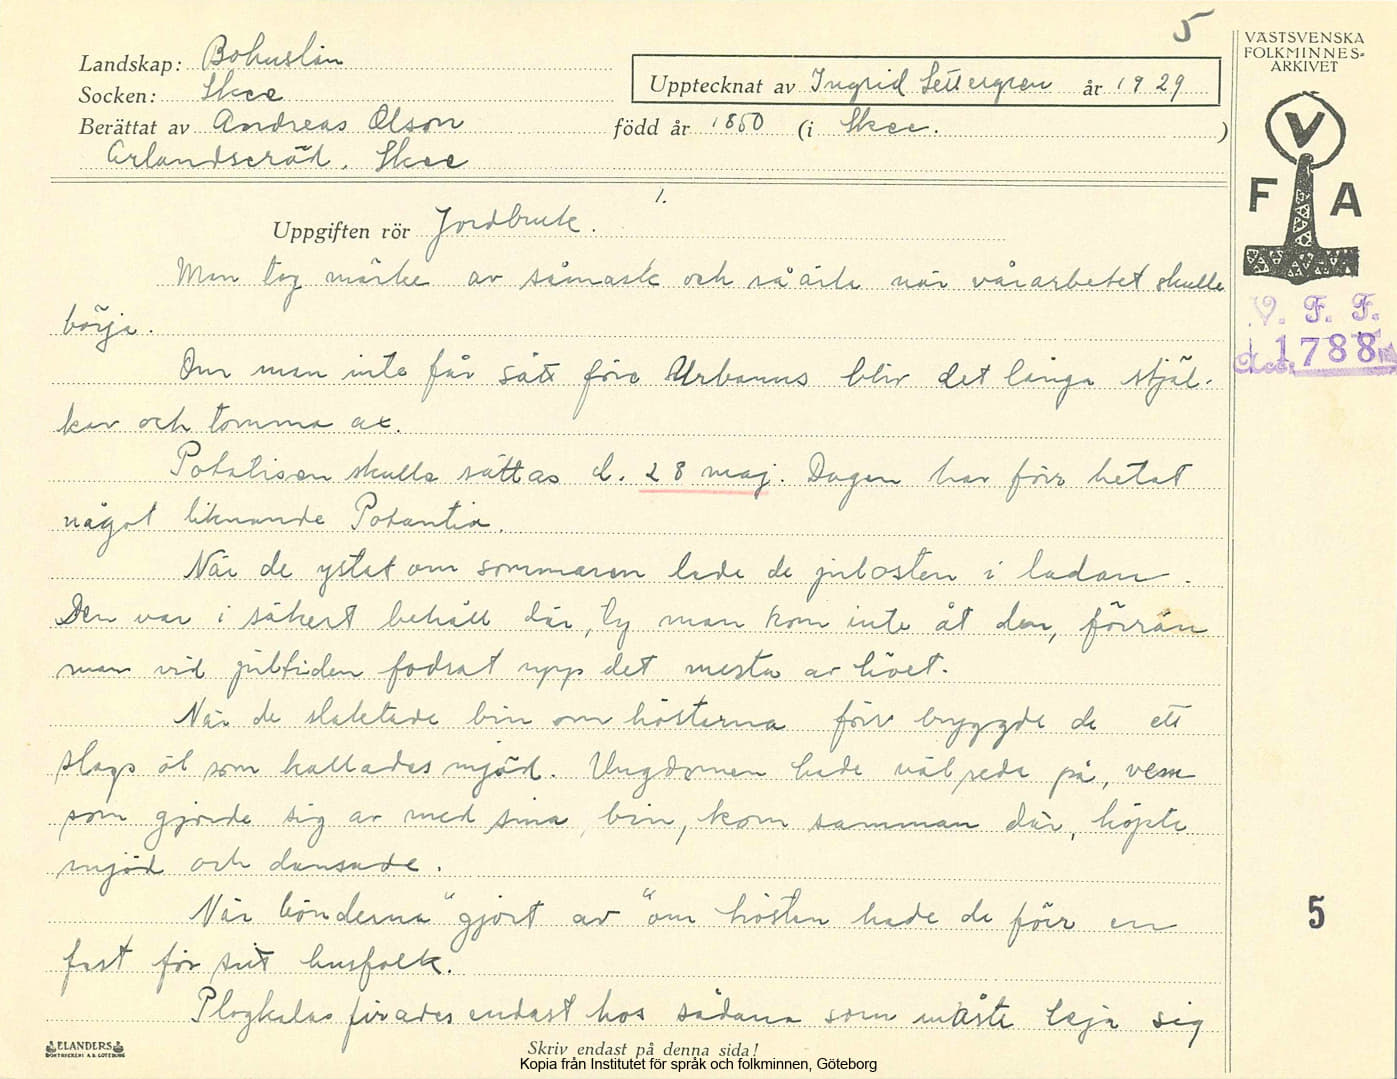 5
Landskap: Bohuslän
Socken: Skee
Berättat av Andreas Olson
Arlandseröd, Skee
Upptecknat av Ingrid Settergren år 1929
född år 1850 (i Skee. )
VÄSTSVENSKA
FOLKMINNES-
ARKIVET
V
F A
V. F. F.
Acc. 1788
1.
Uppgiften rör Jordbruk.
Man tog märke av såmask och såärla när vårarbetet skulle
börja.
Om man inte får sått före Urbanus blir det långa stjäl-
kar och tomma ax.
Potatisen skulle sättas d. 28 maj. Dagen har förr hetat
något liknande Potantia.
När de ystat om sommaren lade de julosten i ladan.
Den var i säkert behåll där, ty man kom inte åt den, förrän
man vid jultiden fodrat upp det mesta av höet.
När de slaktade bin om höstarna förr bryggde de ett
slags öl som kallades mjöd. Ungdomen hade väl reda på, vem
som gjorde sig av med sina bin, kom samman där, köpte
mjöd och dansade.
När bönderna "gjort av" om hösten hade de förr en
fest för sitt husfolk.
Plogkalas firades endast hos sådana som måste leja sig
5
ELANDERS
BOKTRYCKERI A.B. GÖTEBORG
Skriv endast på denna sida!
Kopia från Institutet för språk och folkminnen, Göteborg